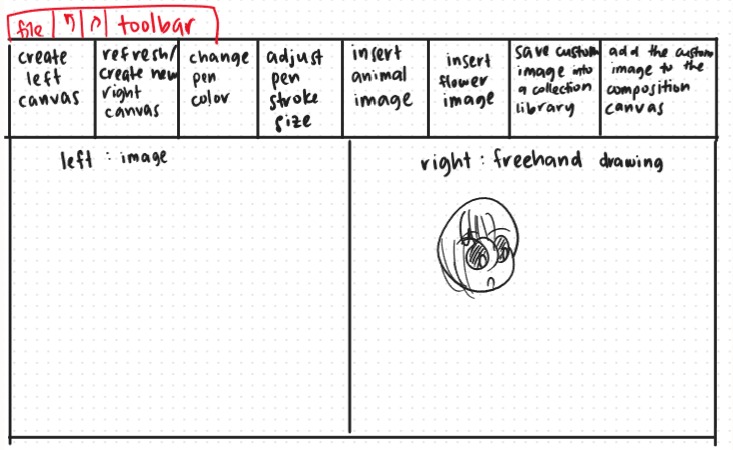 file toolbar
create
left
canvas
refresh/
create new
right
canvas
change
pen
color
adjust
pen
stroke
size
insert
animal
image
insert
flower
image
save custom
image into
a collection
library
add the custom
image to the
composition
canvas
left : image
right : freehand drawing